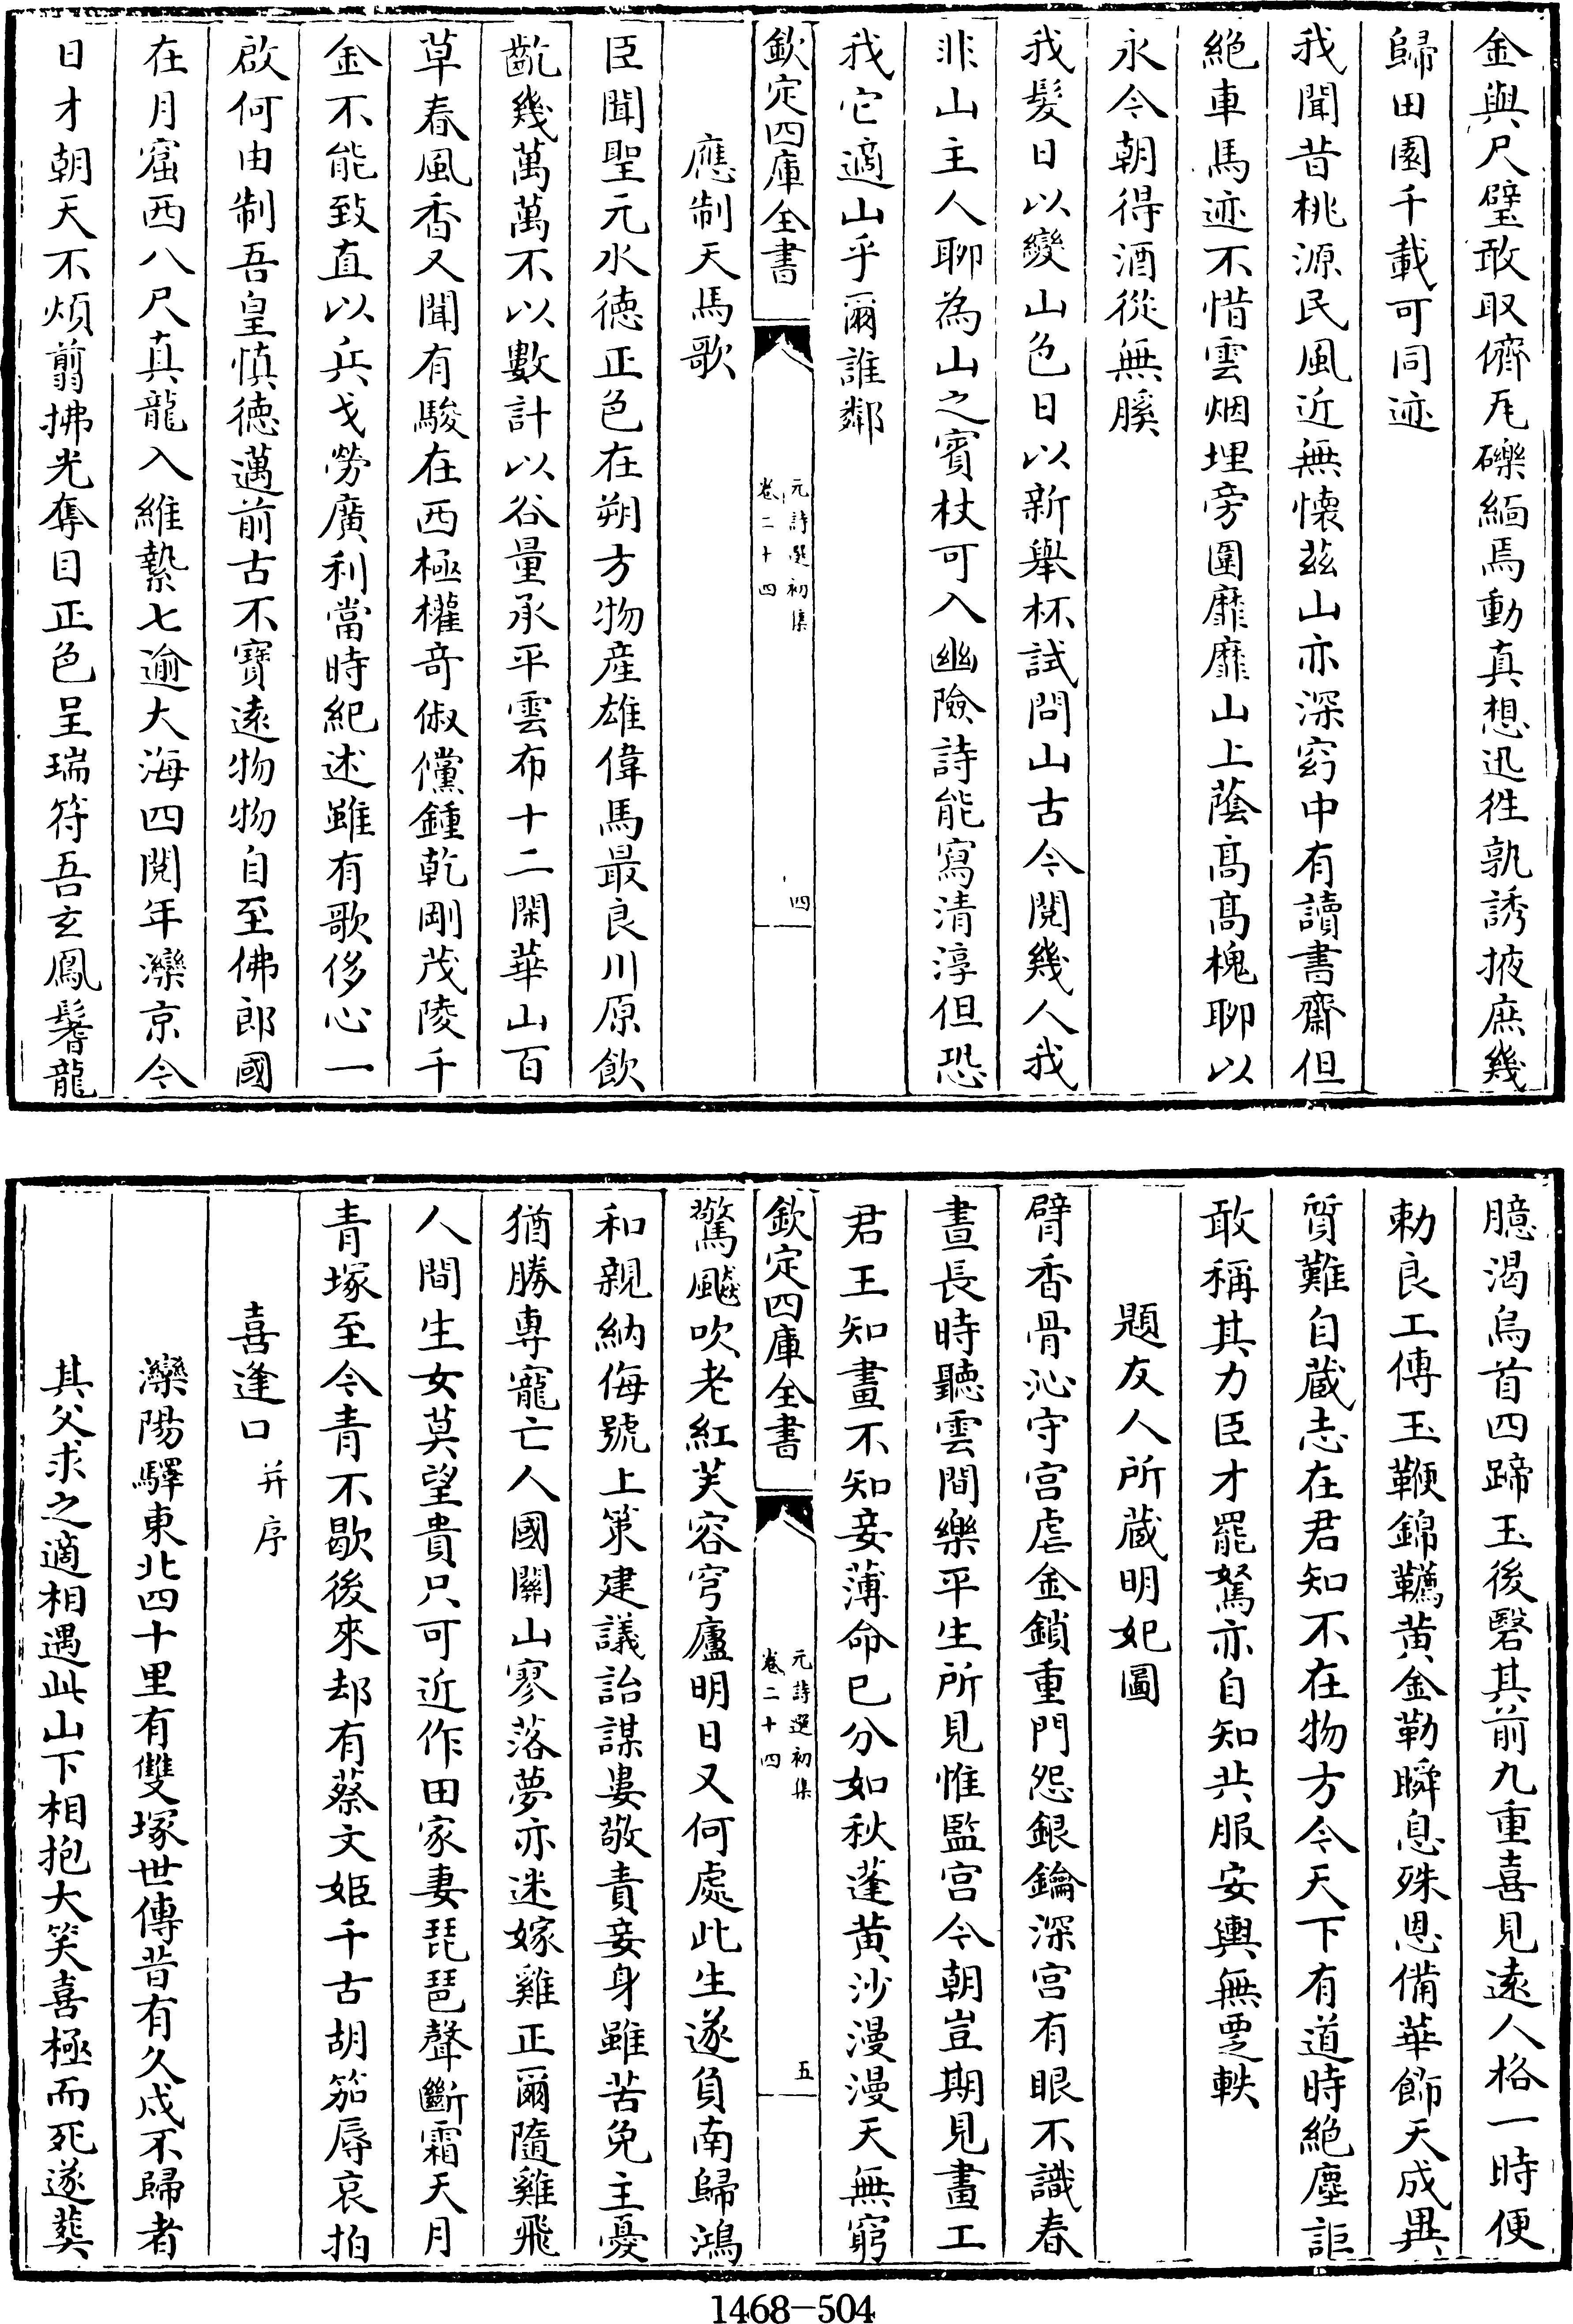 金與尺璧敢取儕瓦礫緬焉動真想迅徃孰誘掖庶幾
歸田園千載可同迹
我聞昔桃源民風近無懐茲山亦深窈中有讀書齋但
絕車馬迹不惜雲烟埋旁圍靡靡山上蔭髙髙槐聊以
永今朝得酒從無膎
我髮日以變山色日以新舉杯試問山古今閱幾人我
非山主人聊為山之賓杖可入幽險詩能寫清淳但恐
我它適山乎爾誰鄰
欽定四庫全書
元詩選初集
卷二十四
四
應制天馬歌
臣聞聖元水徳正色在朔方物産雄偉馬最良川原飲
齕幾萬萬不以數計以谷量承平雲布十二閑華山百
草春風香又聞有駿在西極權竒俶儻鍾乾剛茂陵千
金不能致直以兵戈勞廣利當時紀述雖有歌侈心一
啟何由制吾皇慎徳邁前古不寶逺物物自至佛郎國
在月窟西八尺真龍入維縶七逾大海四閱年灤京今
日才朝天不煩翦拂光奪目正色呈瑞符吾玄鳳鬐龍
臆渴烏首四蹄玉後磬其前九重喜見遠人格一時便
勅良工傳玉鞭錦韉黄金勒瞬息殊恩備華飾天成異
質難自蔵志在君知不在物方今天下有道時絕塵詎
敢稱其力臣才罷駑亦自知共服安輿無覂軼
題友人所蔵明妃圖
臂香骨沁守宫虐金鎖重門怨銀鑰深宫有眼不識春
晝長時聽雲間樂平生所見惟監宫今朝豈期見畫工
君王知畫不知妾薄命已分如秋蓬黄沙漫漫天無窮
欽定四庫全書
元詩選初集
卷二十四
五
驚飈吹老紅芙容穹廬明日又何處此生遂負南歸鴻
和親納侮號上策建議詒謀婁敬責妾身雖苦免主憂
猶勝專寵亡人國關山寥落夢亦迷嫁雞正爾隨雞飛
人間生女莫望貴只可近作田家妻琵琶聲斷霜天月
青塚至今青不歇後來却有蔡文姬千古胡笳辱哀拍
喜逢口并序
灤陽驛東北四十里有雙塚世傳昔有久戍不歸者
其父求之適相遇此山下相抱大笑喜極而死遂葬
1468-504